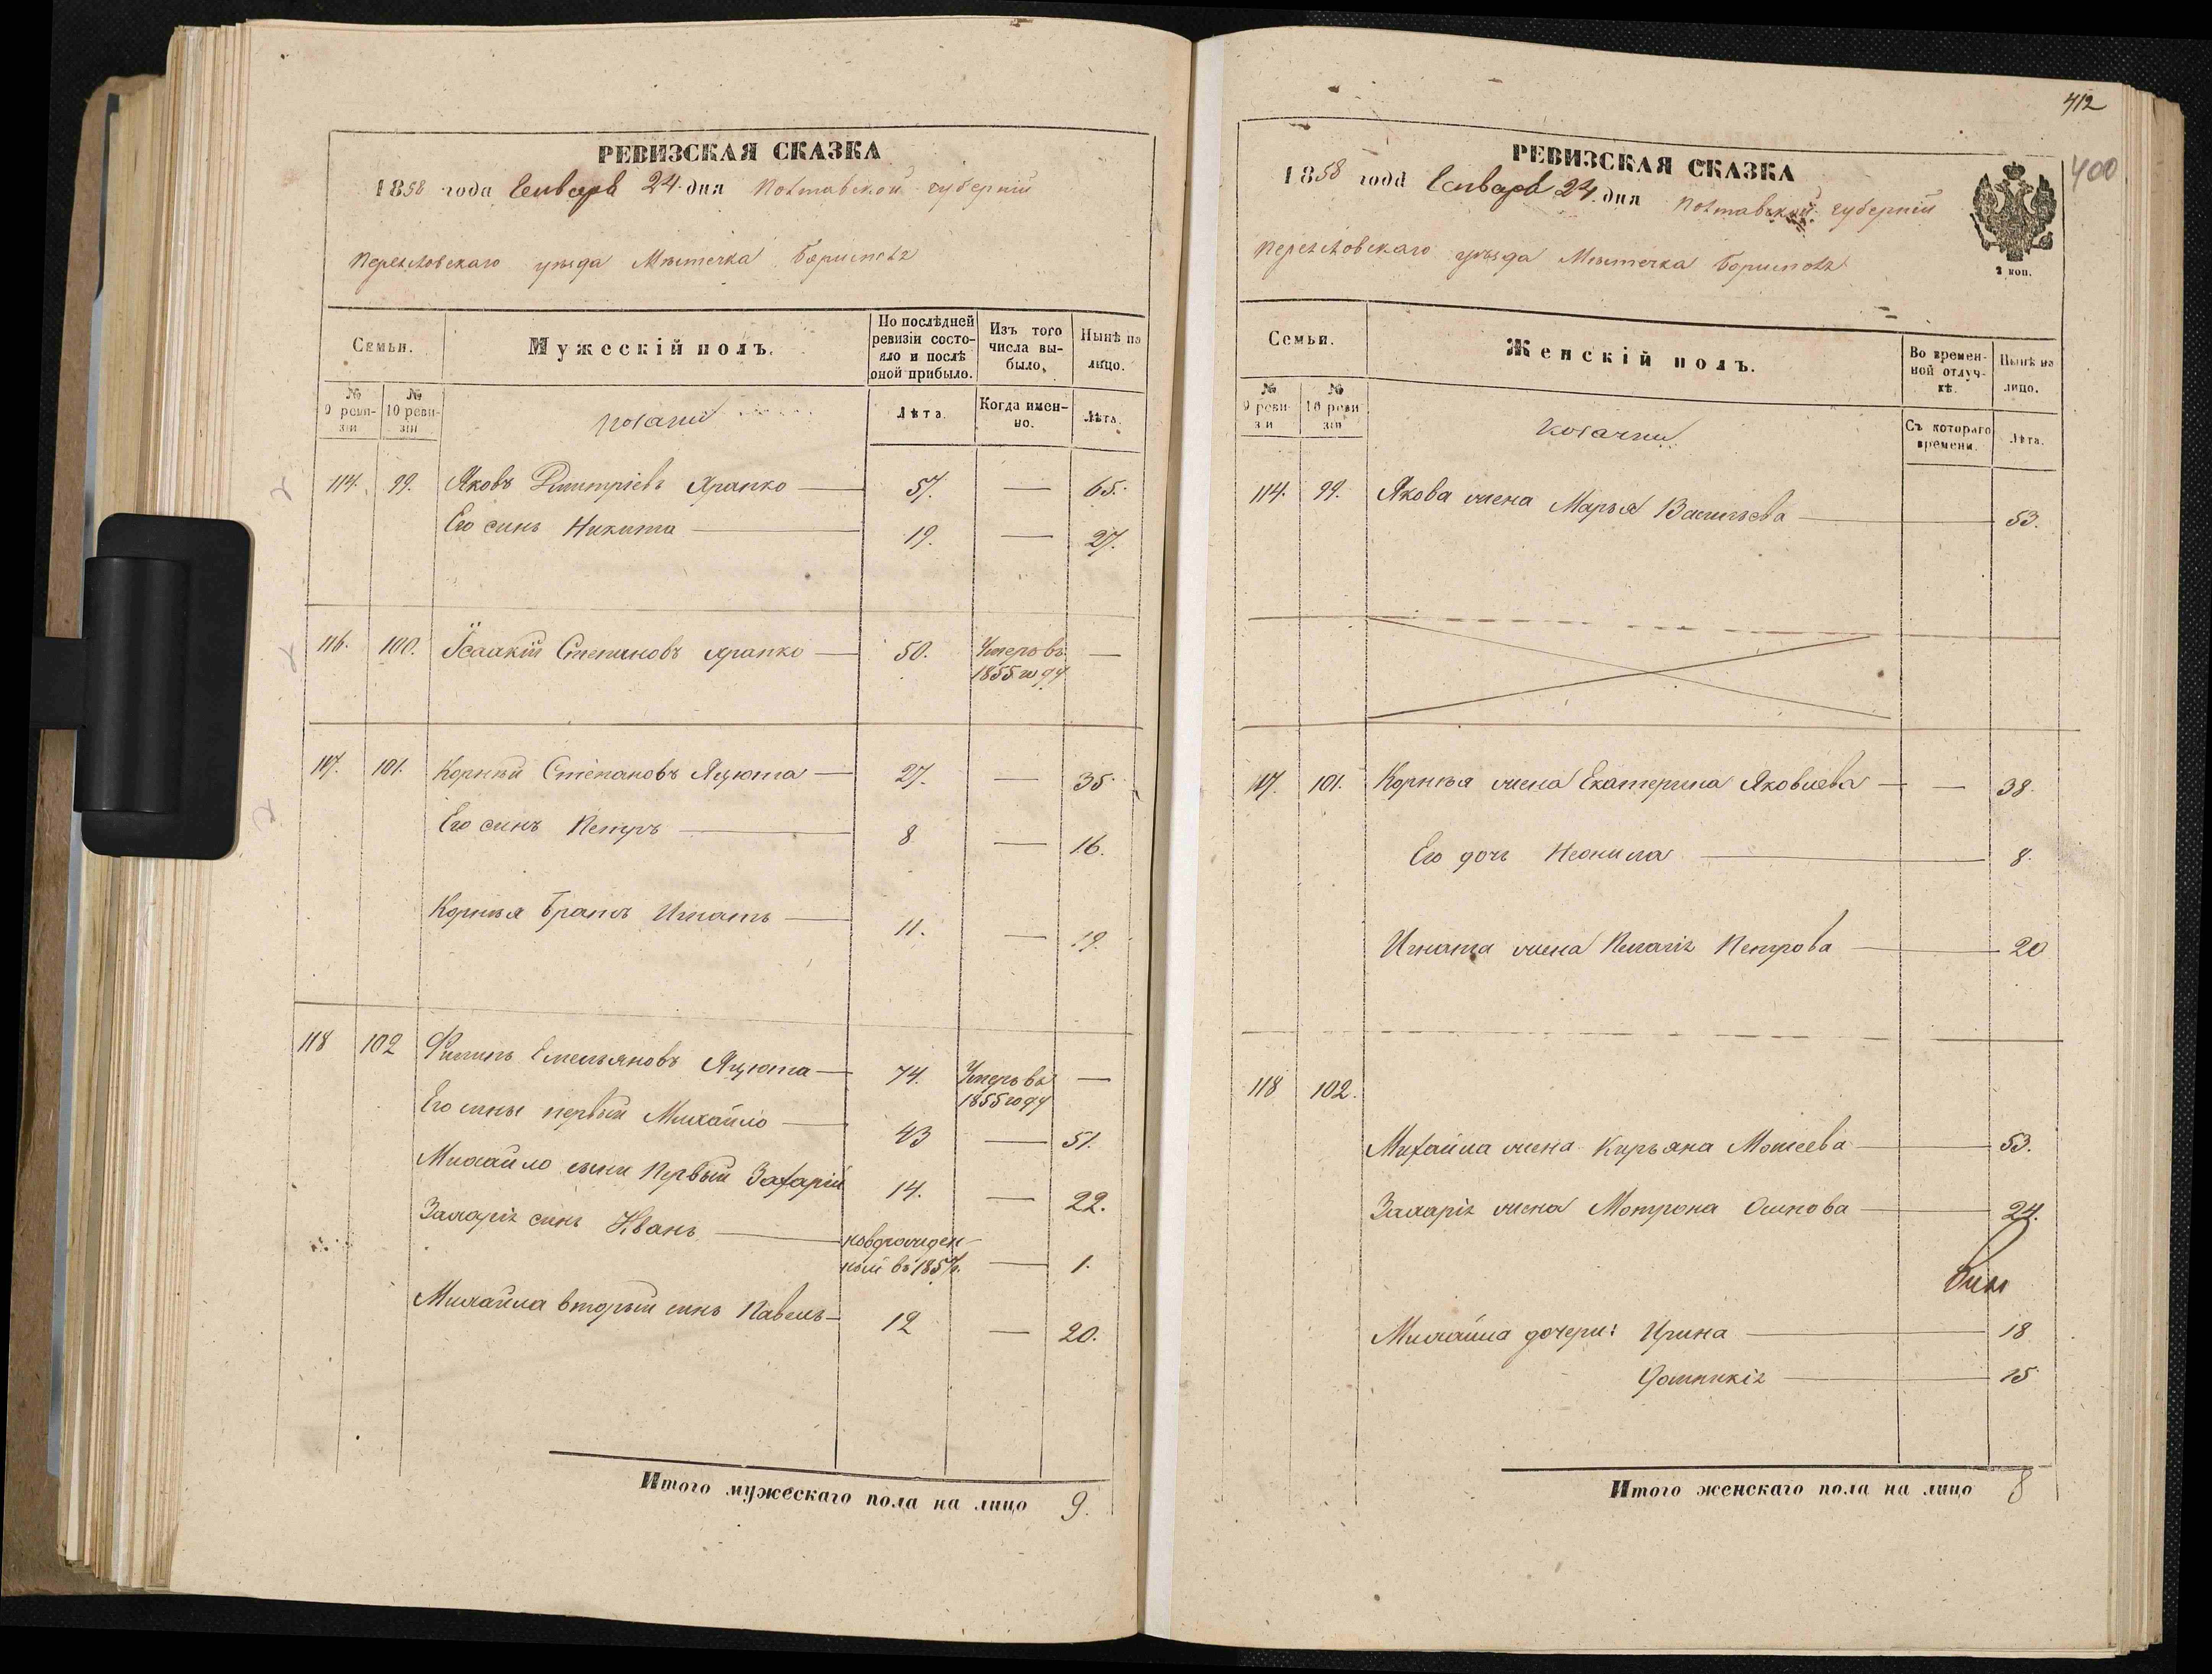 РЕВИЗСКАЯ СКАЗКА
1858 года Генваря 24 дня Полтавской губерніи
Переяловскаго уѣзда Мѣстечка Борисполя
Семьи.
Мужескій полъ.
По послѣдней ревизіи состояло и послѣ оной прибыло.
Изъ того числа выбыло,
Нынѣ на лицо.
№ 9 ревизіи
№ 10 ревизіи
Козаки
Лѣта.
Когда именно.
Лѣта.
114. 99. Яковъ Дмитріевъ Храпко — 57. — 65.
Его синъ Никита — 19. — 27.
116. 100. Ісаакій Степановъ Храпко — 50. Умеръ въ 1855 году —
117. 101. Корнѣй Степановъ Яцюта — 27. — 35
Его синъ Петръ — 8 — 16.
Корнѣя Братъ Игнатъ — 11. — 19.
118 102 Филипъ Емельяновъ Яцюта — 74. Умеръ въ 1855 году —
Его сины первый Михайло — 43 — 51.
Михайло сыни Первый Захарій 14. — 22.
Захарія синъ Иванъ — новорожденный въ 1857. — 1.
Михайла вторый синъ Павелъ — 12 — 20.
Итого мужескаго пола на лицо 9.
412
400
РЕВИЗСКАЯ СКАЗКА
1858 года Генваря 24. дня Полтавской губерніи
Переяловскаго уѣзда Мѣстечка Борисполя
2 коп.
Семьи.
Женскій полъ.
Во временной отлучкѣ.
Нынѣ на лицо.
№ 9 ревизіи
№ 10 ревизіи
Козачки
Съ котораго времени.
Лѣта.
114. 99. Якова жена Марья Васильева — 53.
117. 101. Корнѣя жена Екатерина Яковлева — — 38.
Его дочь Неонила — 8.
Игната жена Пелагія Петрова — 20
118 102.
Михайла жена Кирьяна Мойсеева — 53.
Захарія жена Мотрона Осипова — 24.
Михайла дочери: Ирина — 18
Домникія — 15
Итого женскаго пола на лицо 8